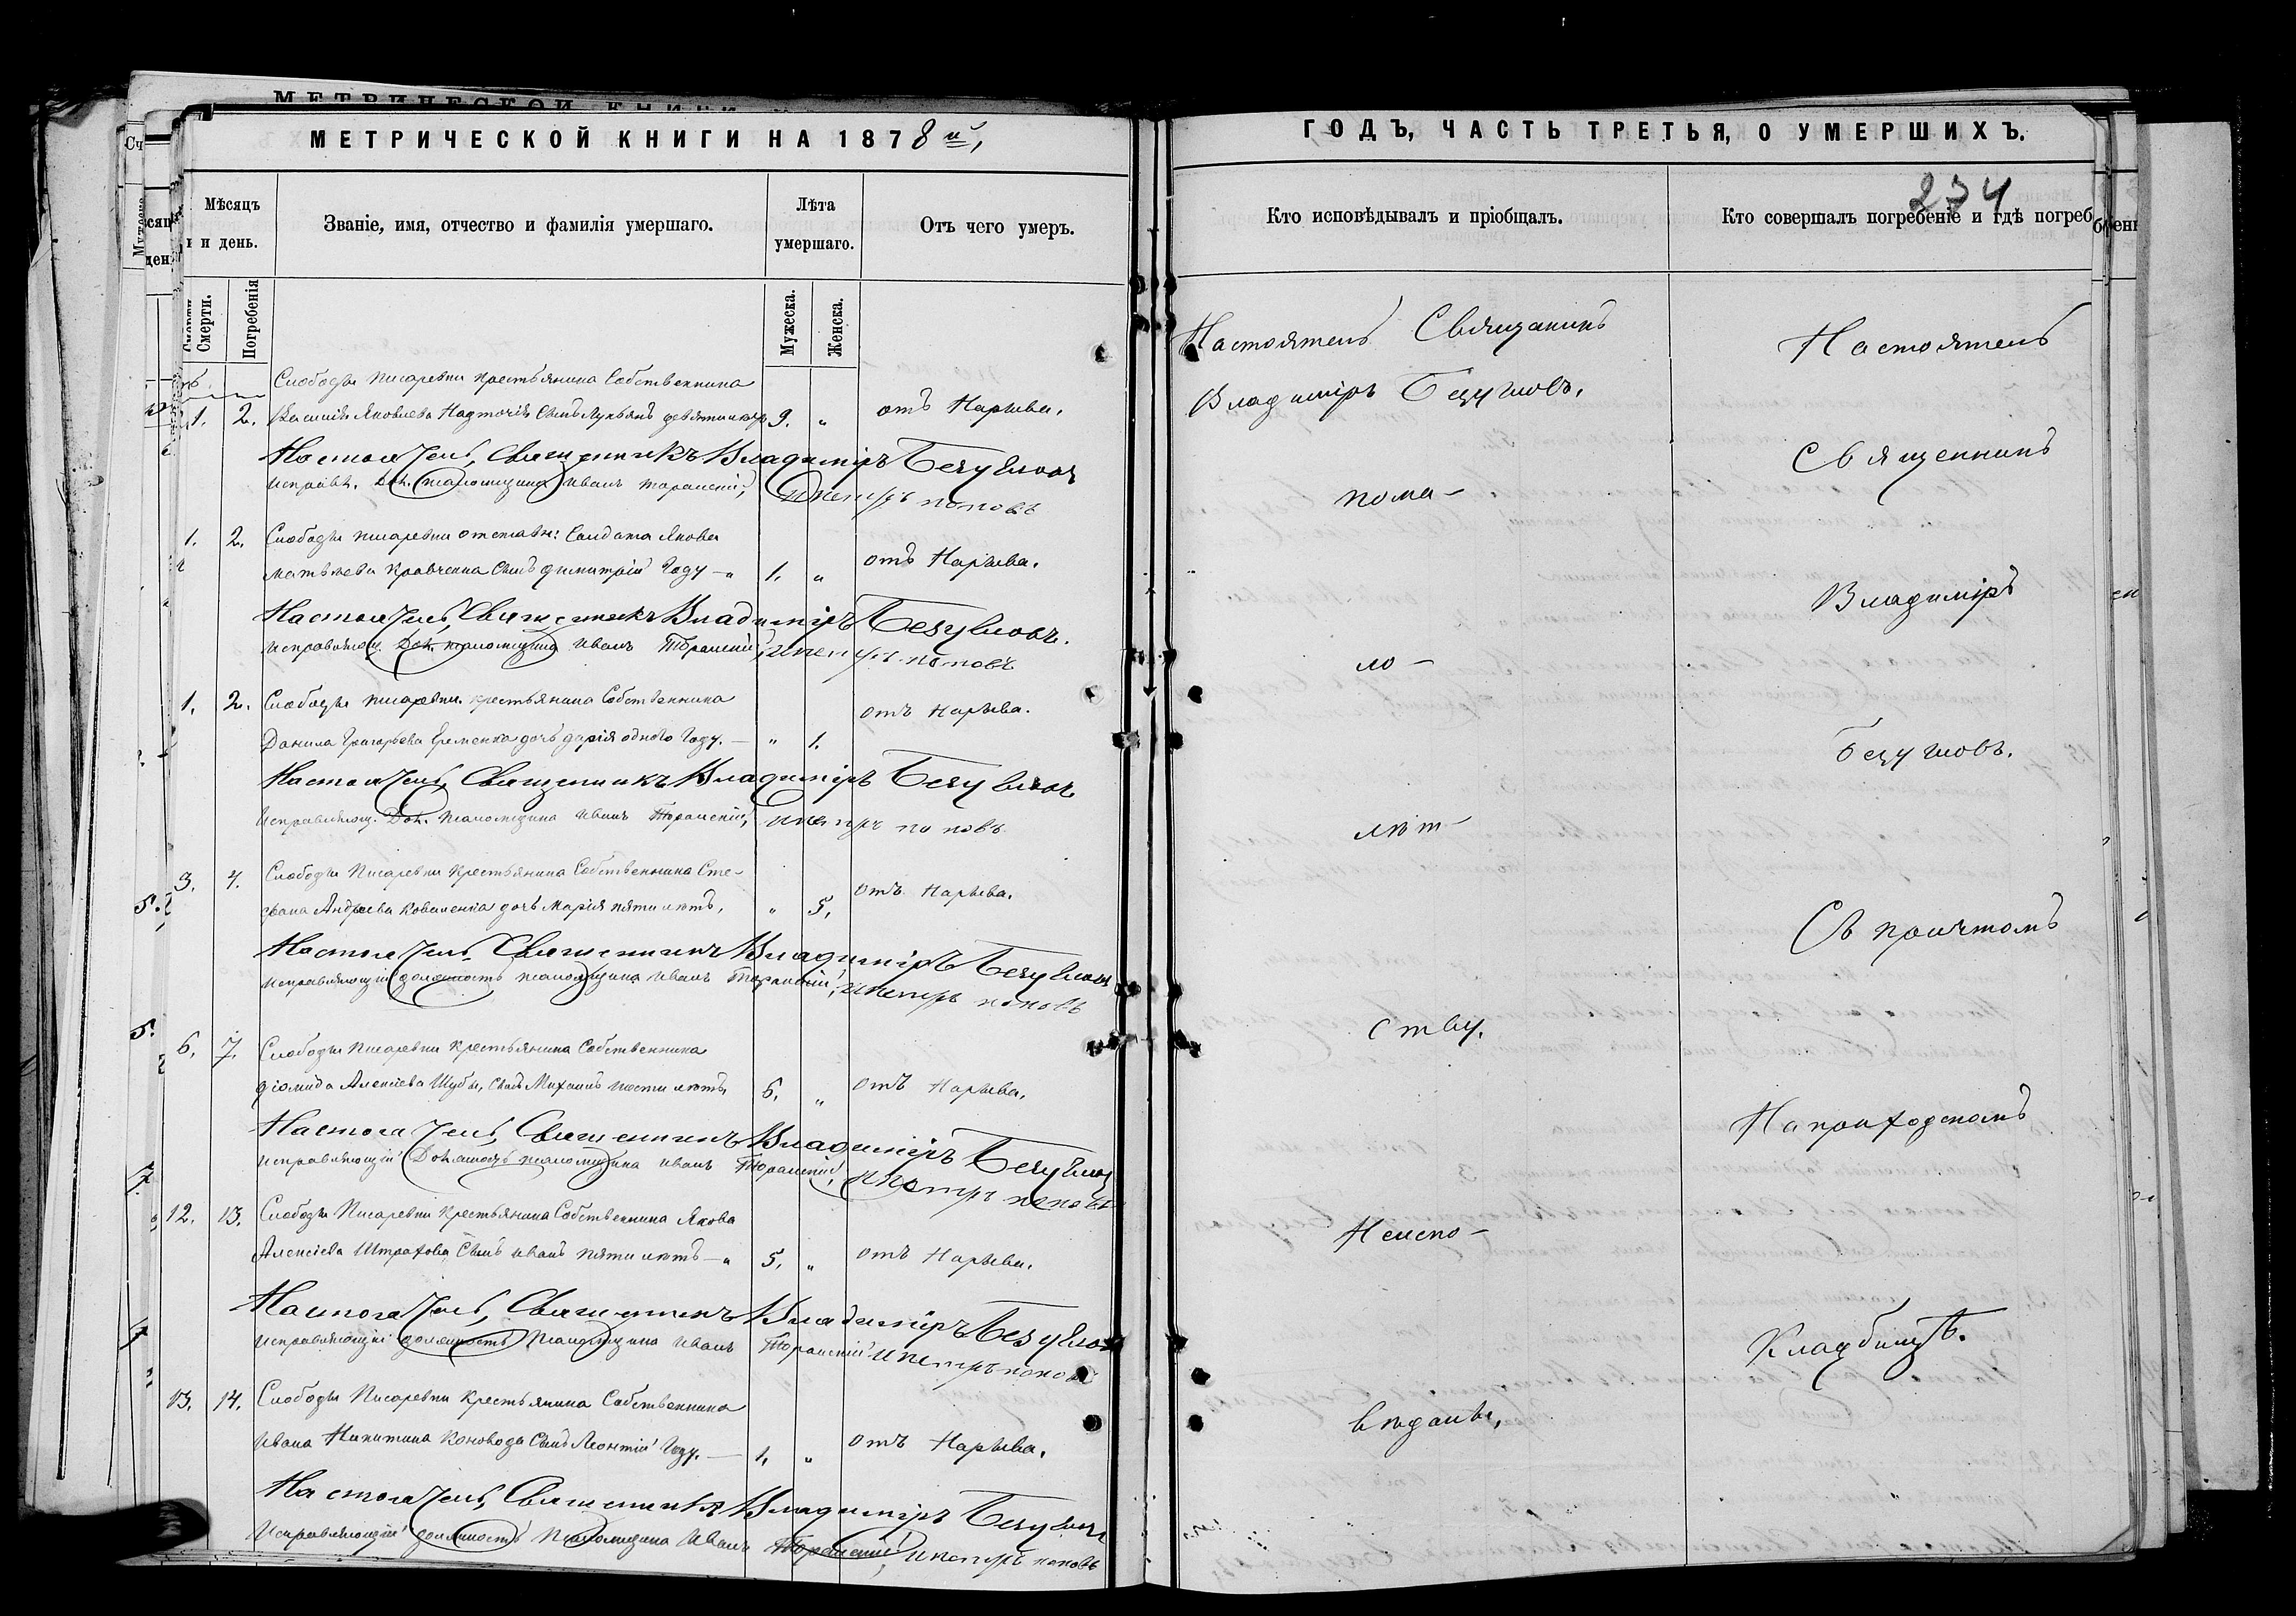 МЕТРИЧЕСКОЙ КНИГИ НА 1878й,
Мѣсяцъ и день.
Званіе, имя, отчество и фамилія умершаго.
Лѣта умершаго.
Отъ чего умеръ.
Смерти.
Погребенія
Мужеска.
Женска.
Слободы Писаревки крестьянина Собственника
1. 2. Василія Яковлева Надточія Сынъ Лукьянъ девяти 9. " отъ Нарыва.
Настоятель, Священникъ Владиміръ Безугловъ
исправл. Дол. псаломщика Иванъ Торанскій, и Петръ Поповъ
1. 2. Слободы Писаревки отставн: Солдата Якова
Матвѣева Кравченка Сынъ Димитрій Году — " 1. " отъ Нарыва.
Настоятель, Священникъ Владиміръ Безугловъ.
исправляющ. Дол. псаломщика Иванъ Торанскій, и Петръ Поповъ
1. 2. Слободы Писаревки крестьянина Собственника
Данила Григорьева Еременка дочь Дарія одного Году. — " 1. отъ Нарыва.
Настоятель, Священникъ Владиміръ Безугловъ
исправляющ. Дол. псаломщика Иванъ Торанскій, и Петръ Поповъ
3. 4. Слободы Писаревки Крестьянина Собственника Сте-
фана Андреева Коваленка дочь Марія пяти лѣтъ, " 5. отъ Нарыва.
Настоятель, Священникъ Владиміръ Безугловъ
исправляющій должность псаломщика Иванъ Торанскій, и Петръ Поповъ
6. 7. Слободы Писаревки Крестьянина Собственника
Діомида Алексіева Шубы, Сынъ Михаилъ шести лѣтъ 6. " отъ Нарыва.
Настоятель, Священникъ Владиміръ Безугловъ
исправляющій Должность псаломщика Иванъ Торанскій, и Петръ Поповъ
12. 13. Слободы Писаревки Крестьянина Собственника Якова
Алексіева Штрахова Сынъ Иванъ пяти лѣтъ — " 5. " отъ Нарыва.
Настоятель, Священникъ Владиміръ Безугловъ
исправляющій должность Псаломщика Иванъ Торанскій и Петръ Поповъ
13. 14. Слободы Писаревки Крестьянина Собственника
Ивана Никитина Коновода Сынъ Леонтій Году. — 1. " отъ Нарыва.
Настоятель, Священникъ Владиміръ Безугловъ
Исправляющій должность Псаломщика Иванъ Торанскій, и Петръ Поповъ
ГОДЪ, ЧАСТЬ ТРЕТЬЯ, О УМЕРШИХЪ.
234
Кто исповѣдывалъ и пріобщалъ.
Кто совершалъ погребеніе и гдѣ погреб
Настоятель Священникъ
Владиміръ Безугловъ.
пома-
ло-
лѣт-
ству.
Неиспо-
вѣданы.
Настоятель
Священникъ
Владиміръ
Безугловъ.
Съ причтомъ
На приходскомъ
Кладбищѣ.